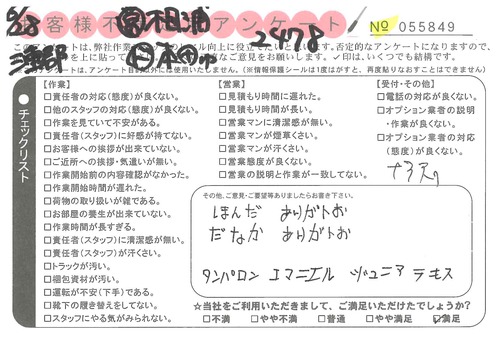 6/28
お客様不満足アンケート
2478
№ 055849
このアンケートは、弊社作業
否定的なアンケートになりますので、
ご意見をお願いします。✓印は、いくつでも結構です。
アンケートは、アンケート目的以外には使用いたしません。(※情報保護シールは1度がはすと、再度貼りなおすことはできません)
チェックリスト
【作業】
□責任者の対応(態度)が良くない。
□他のスタッフの対応(態度)が良くない。
□作業を見ていて不安がある。
□責任者(スタッフ)に好感が持てない。
□お客様への挨拶が出来ていない。
□ご近所への挨拶・気遣いが無い。
□作業開始前の内容確認がなかった。
□作業開始時間が遅れた。
□荷物の取り扱いが雑である。
□お部屋の養生が出来ていない。
□作業時間が長すぎる。
□責任者(スタッフ)に清潔感が無い。
□責任者(スタッフ)が汗くさい。
□トラックが汚い。
□梱包資材が汚い。
□運転が不安(下手)である。
□靴下の履き替えをしてない。
□スタッフにやる気がみられない。
【営業】
□見積もり時間に遅れた。
□見積もり時間が長い。
□営業マンに清潔感が無い。
□営業マンが煙草くさい。
□営業マンが汗くさい。
□営業態度が良くない。
□営業の説明と作業が一致してない。
【受付・その他】
□電話の対応が良くない。
□オプション業者の説明・作業が良くない。
□オプション業者の対応(態度)が良くない。
その他、ご意見・ご要望等ありましたらお書き下さい。
ほんだ ありがトお
だなか ありがトお
タンパロン エマニエル ジュニア ラモス
☆当社をご利用いただきまして、ご満足いただけたでしょうか?
□不満 □やや不満 □普通 □やや満足 ☑満足